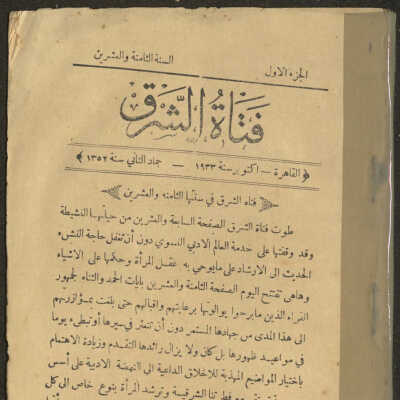 الجزء الاول
السنة الثامنة والعشرين
فتاة الشرق
﴿ القاهرة — اكتوبر سنة ١٩٣٣ — جماد الثاني سنة ١٣٥٢ ﴾
فتاه الشرق في سنتها الثامنه والعشرين
طوت فتاة الشرق الصفحة السابعة والعشرين من حياتها النشيطة
وقد وقفتها على خدمة العالم الادبي النسوي دون أن تغفل حاجة النشء
الحديث الى الارشاد على ما يوحي به عقل المرأة وحكمها على الاشياء
وهاهي تفتتح اليوم الصفحة الثامنة والعشرين بايات الحمد والثناء لجمهور
القراء الذين ما برحوا يوالونها برعايتهم واقبالهم حتى بلغت بمؤازرتهم
الى هذا المدى من جهادها المستمر دون أن تتعثر في سيرها أو تبطىء يوما
في مواعيد ظهورها بل كان ولا يزال رائدها التقدم وزيادة الاهتمام
باختيار المواضيع المهذبة للاخلاق الداعية الى النهضة الادبية على أسس
الشرقية وترشد المرأة بنوع خاص الى كل